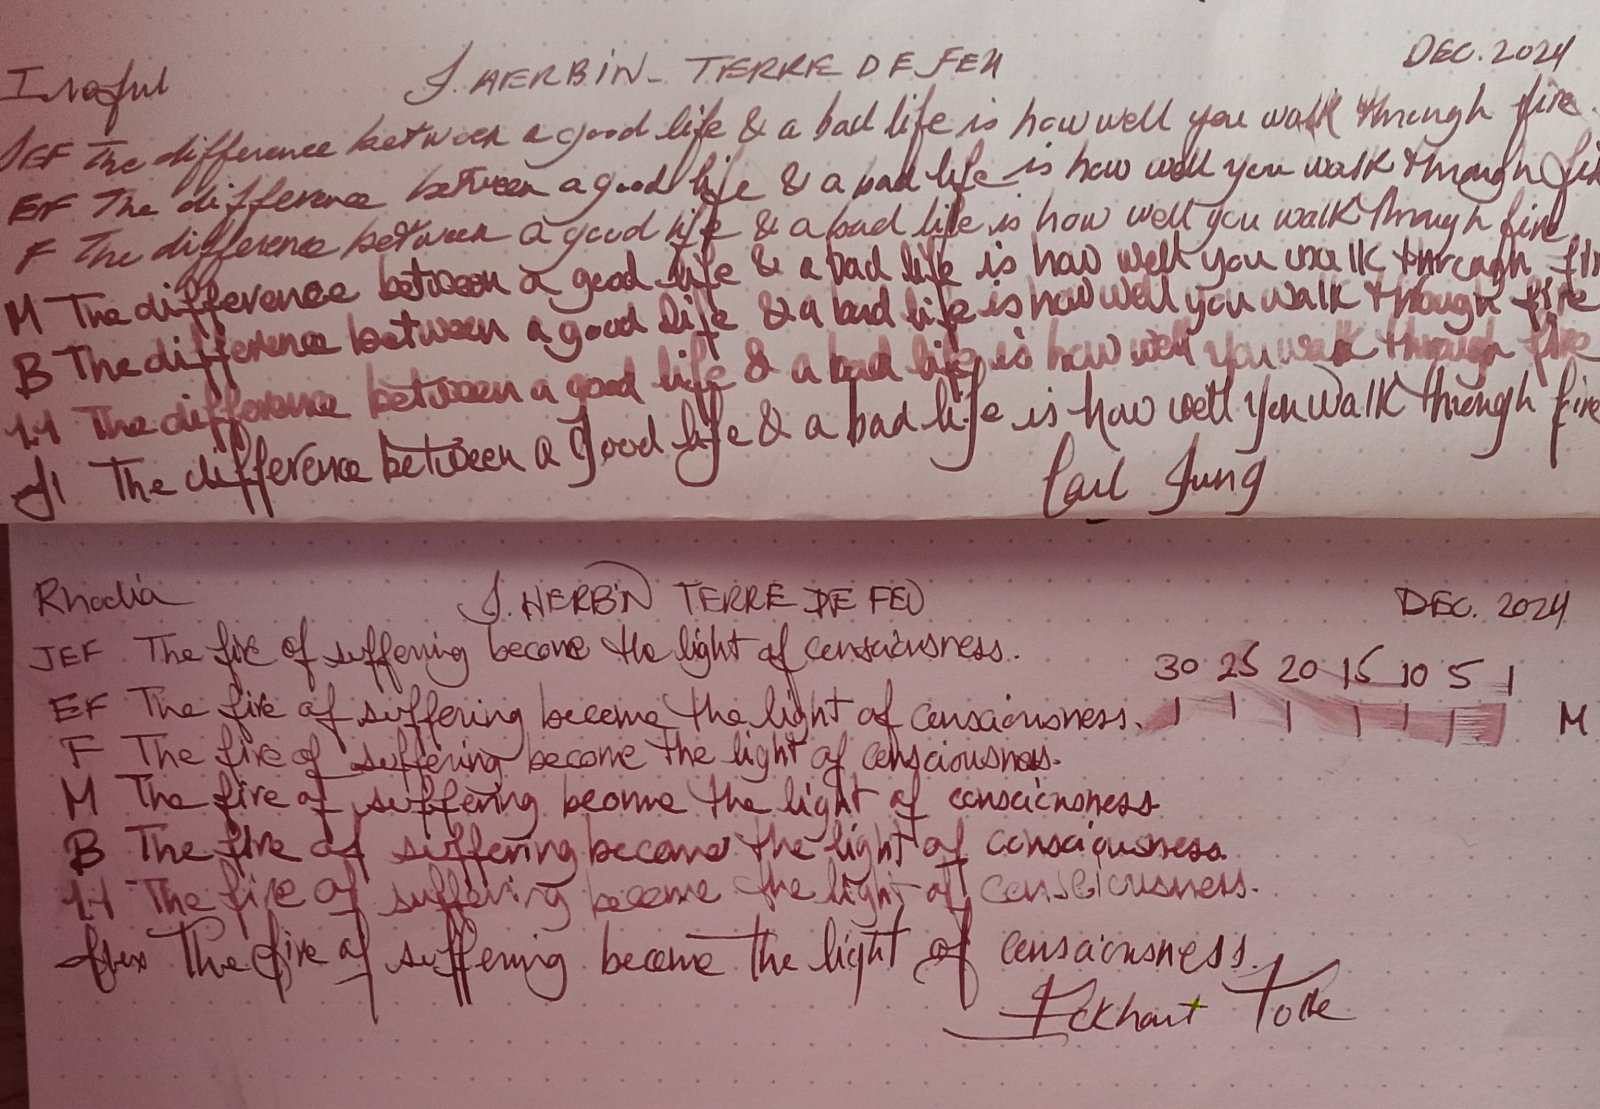 Iroful J. HERBIN - TERRE DE FEU DEC. 2024
JEF The difference between a good life & a bad life is how well you walk through fire.
EF The difference between a good life & a bad life is how well you walk through fire
F The difference between a good life & a bad life is how well you walk through fire
M The difference between a good life & a bad life is how well you walk through fir
B The difference between a good life & a bad life is how well you walk through fire
1.1 The difference between a good life & a bad life is how well you walk through fire
The difference between a good life & a bad life is how well you walk through fire
Carl Jung
Rhodia J. HERBIN TERRE DE FEU DEC. 2024
JEF The fire of suffering become the light of consciousness.
30 25 20 15 10 5 1
EF The fire of suffering become the light of consciousness. M
F The fire of suffering become the light of consciousness.
M The fire of suffering become the light of consciousness
B The fire of suffering become the light of consciousness.
1.1 The fire of suffering become the light of consciousness.
flex The fire of suffering become the light of consciousness.
Eckhart Tolle